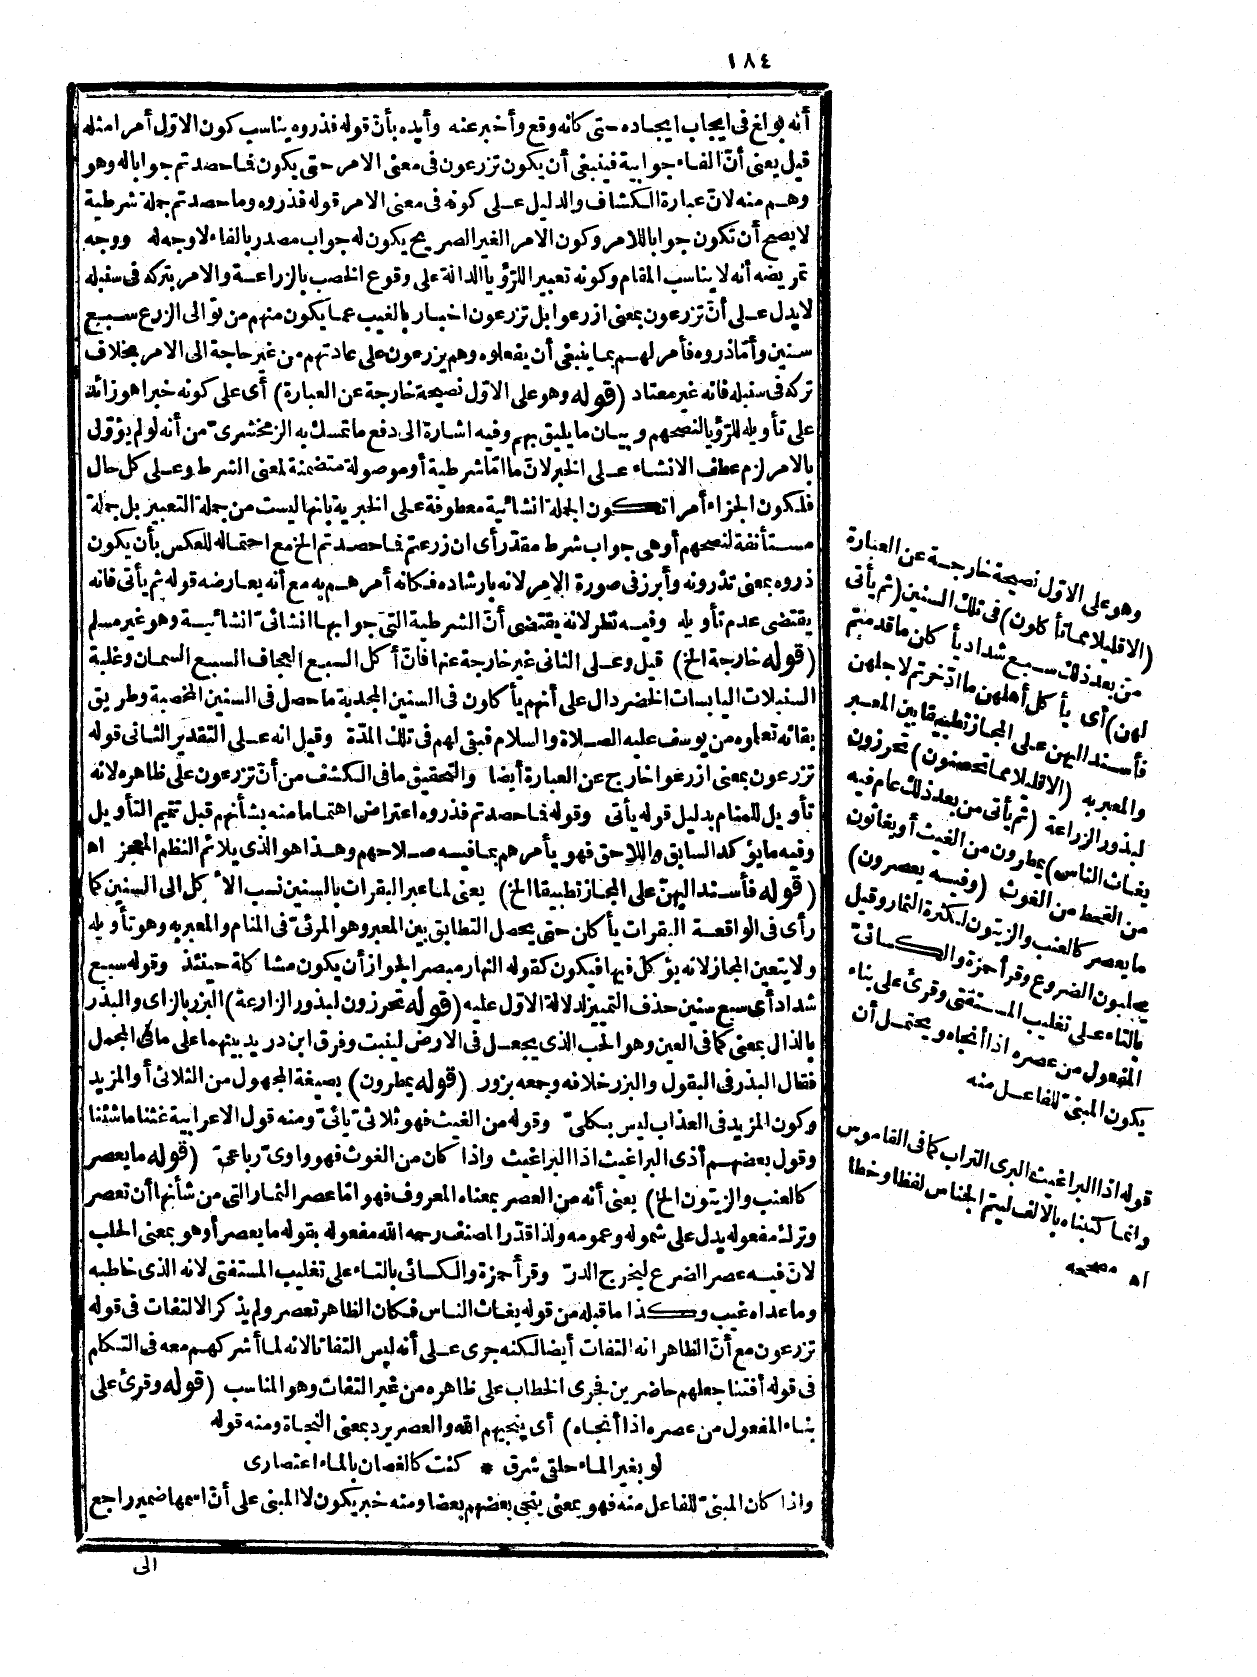 ١٨٤
أنه بولغ في ايجاب ايجاده حتى كأنه وقع وأخبر عنه وأيده بأنّ قوله فذروه يناسب كون الاوّل أمرا مثله
قيل يعني أنّ الفاء جوابية فينبغي أن يكون تزرعون في معنى الامر حتى يكون فما حصدتم جوابا له وهو
وهــم منه لانّ عبارة الكشاف والدليل عــلى كونه في معنى الامر قوله فذروه وما حصدتم جملة شرطية
لا يصح أن تكون جوابا للامر وكون الامر الغير الصريح يكون له جواب مصدر بالفاء لا وجه له ووجه
تمريضه أنه لا يناسب المقام وكونه تعبيرا للرّؤيا الدالة على وقوع الخصب بالزراعــة والامر بتركه في سنبله
لا يدل عــلى أنّ تزرعون بمعنى ازرعوا بل تزرعون اخبــار بالغيب عمـا يكون منهم من توالى الزرع ســبع
سنين وأمّا ذروه فأمر لهــم بمـا ينبغي أن يفعلوه وهم يزرعون على عادتهم من غير حاجة الى الامر بخلاف
تركه في سنبله فانه غير معتاد (قوله وهو على الاوّل نصيحة خارجة عن العبارة) أى على كونه خبرا هو زائد
على تأويله للرّؤيا لنصحهم وبيان ما يليق بهم وفيه اشارة الى دفع ما تمسك به الزمخشرىّ من أنه لو لم يؤوّل
بالامر لزم عطف الانشاء عــلى الخبر لانّ ما امّا شرطية أو موصولة متضمنة لمعنى الشرط وعــلى كل حال
فلكون الجزاء أمرا تكــون الجملة انشائية معطوفة على الخبرية بأنها ليست من جملة التعبير بل جملة
مســتأنفة لنصحهم أو هى جواب شرط مقدر أى ان زرعتم فما حصدتم الخ مع احتماله للعكس بأن يكون
ذروه بمعنى تذرونه وأبرز في صورة الامر لانه بارشاده فكأنه أمرهــم به مع أنه يعارضه قوله ثم يأتى فانه
يقتضى عدم تأويله وفيــه نظر لانه يقتضى أنّ الشرطية التى جوابها انشائىّ انشائيــة وهو غير مسلم
(قوله خارجة الخ) قيل وعــلى الثانى غير خارجة عنها فانّ أكل السبع العجاف السبع السمان وغلبة
السنبلات اليابسات الخضر دال على أنهم يأكلون في السنين المجدبة ما حصل في السنين المخصبة وطريق
بقائه تعلموه من يوسف عليه الصــلاة والسلام فبقى لهم في تلك المدّة وقيل انه عــلى التقدير الثانى قوله
تزرعون بمعنى ازرعوا خارج عن العبارة أيضا والتحقيق ما فى الكشف من أنّ تزرعون على ظاهره لانه
تأويل للمنام بدليل قوله يأتى وقوله فما حصدتم فذروه اعتراض اهتماما منه بشأنهم قبل تتميم التأويل
وفيه ما يؤكد السابق واللاحق فهو يأمرهم بما فيــه صــلاحهم وهــذا هو الذى يلائم النظم المعجز اه
(قوله فأســند اليهنّ على المجاز تطبيقا الخ) يعنى لما عبر البقرات بالسنين نسب الأكل الى السنين كما
رأى فى الواقعــة البقرات يأكلن حتى يحصل التطابق بين المعبر وهو المرئىّ فى المنام والمعبر به وهو تأويله
ولا يتعين المجاز لانه يؤكل فيها فيكون كقوله النهار مبصر الجواز أن يكون مشاكلة حينئذ وقوله سبع
شداد أى سبع سنين حذف التمييز لدلالة الاوّل عليه (قوله تحرزون لبذور الزارعة) البزر بالزاى والبذر
بالذال بمعنى كما فى العين وهو الحب الذى يجعــل فى الارض لينبت وفرق ابن دريد بينهما على ما فى المجمل
فقال البذر فى البقول والبزر خلافه وجمعه بزور (قوله يمطرون) بصيغة المجهول من الثلاثى أو المزيد
وكون المزيد فى العذاب ليس بكلىّ وقوله من الغيث فهو ثلاثىّ يائىّ ومنه قول الاعرابية غثنا ما شئنا
وقول بعضهــم أذى البراغيث اذا البراغيث واذا كان من الغوث فهو واوىّ رباعىّ (قوله ما يعصر
كالعنب والزيتون الخ) يعنى أنه من العصر بمعناه المعروف فهو امّا عصر الثمار التى من شأنها أن تعصر
وترك مفعوله يدل على شموله وعمومه ولذا قدّر المصنف رحمه الله مفعوله بقوله ما يعصر أو هو بمعنى الحلب
لانّ فيــه عصر الضرع ليخرج الدرّ وقرأ حمزة والكسائى بالتــاء على تغليب المستفتى لانه الذى خاطبه
وما عداه غيب وكــذا ما قبله من قوله يغاث الناس فكان الظاهر تعصر ولم يذكر الالتفات فى قوله
تزرعون مع أنّ الظاهر انه التفات أيضا لكنه جرى عــلى أنه ليس التفاتا لانه لما أشركهــم معه فى التكلم
فى قوله أفتنا جعلهم حاضرين فجرى الخطاب على ظاهره من غير التفات وهو المناسب (قوله وقرئ على
بناء المفعول من عصره اذا أنجاه) أى ينجيهم الله والعصر يرد بمعنى النجاة ومنه قوله
لو بغير المــاء حلقى شرق * كنت كالغصان بالمــاء اعتصارى
واذا كان المبنىّ للفاعل منه فهو بمعنى ينجى بعضهم بعضا ومنه خبر يكون لا المبنى على أنّ اسمها ضمير راجع
الى
وهو على الاوّل نصيحة خارجــة عن العبارة
(الا قليلا مما تأكلون) فى تلك السنين (ثم يأتى
من بعد ذلك ســبع شداد يأكلن ما قدمتم
لهن) أى يأكل أهلهن ما ادّخرتم لاجلهن
فأسند اليهن على المجاز تطبيقا بين المعــبر
والمعبر به (الا قليلا مما تحصنون) تحرزون
لبذور الزراعة (ثم يأتى من بعد ذلك عام فيه
يغاث الناس) يمطرون من الغيث أو يغاثون
من القحط من الغوث (وفيــه يعصرون)
ما يعصر كالعنب والزيتون لكثرة الثمار وقيل
يحلبون الضروع وقرأ حمزة والكسائىّ
بالتاء على تغليب المســتفتى وقرئ على بناء
المفعول من عصره اذا أنجاه ويحتمل أن
يكون المبنىّ للفاعــل منه
قوله اذا البراغيث البرى التراب كما فى القاموس
وانما كتبناه بالالف ليتم الجناس لفظا وخطا
اه مصححه